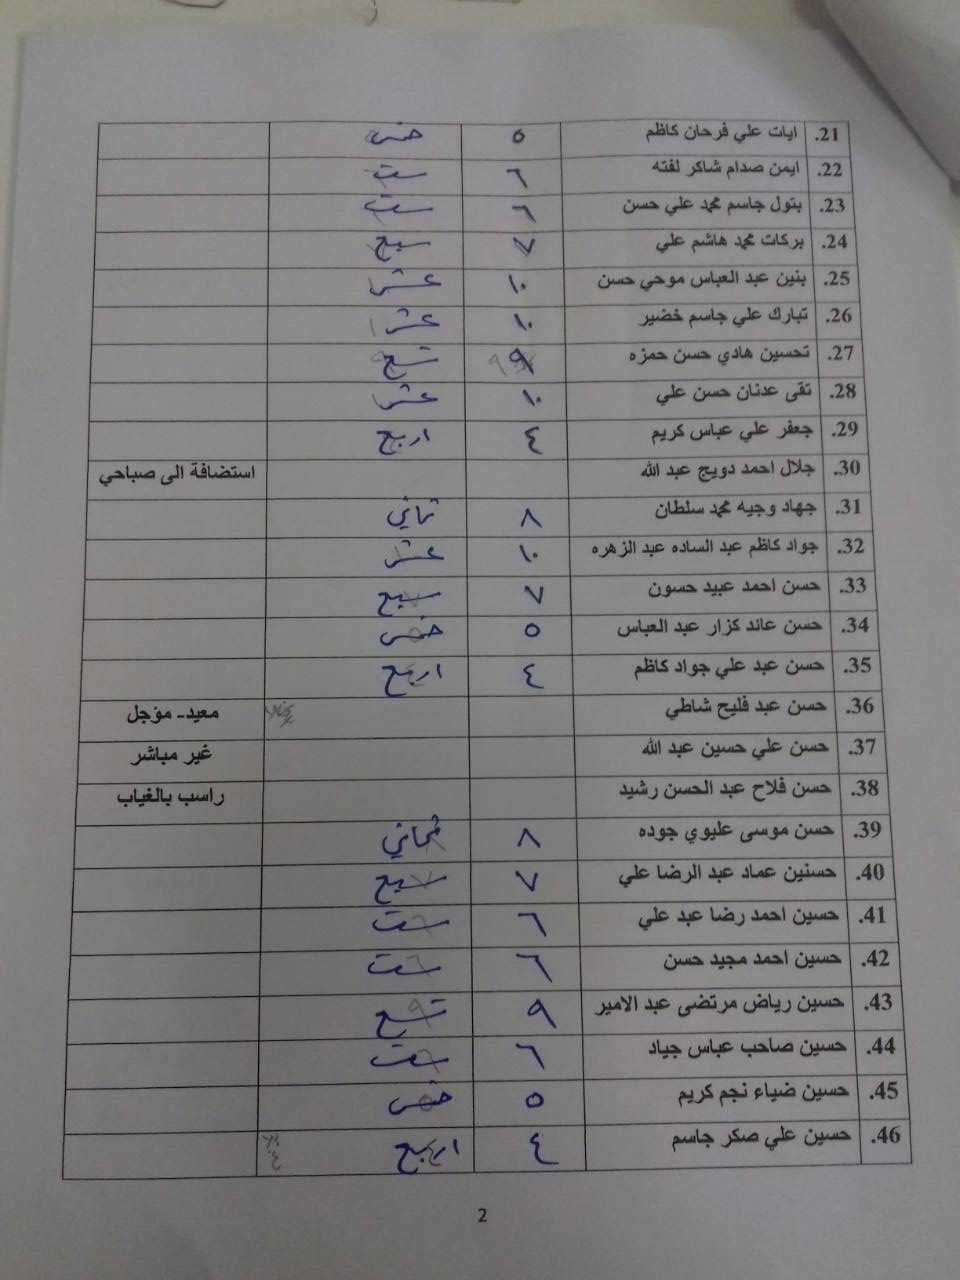 21. ايات علي فرحان كاظم ٥ خمس
22. ايمن صدام شاكر لفته ٦ ست
23. بتول جاسم محمد علي حسن ٦ ست
24. بركات محمد هاشم علي ٧ سبع
25. بنين عبد العباس موحي حسن ١٠ عشر
26. تبارك علي جاسم خضير ١٠ عشر
27. تحسين هادي حسن حمزه ٩ تسع
28. تقى عدنان حسن علي ١٠ عشر
29. جعفر علي عباس كريم ٤ اربع
30. جلال احمد دويج عبد الله استضافة الى صباحي
31. جهاد وجيه محمد سلطان ٨ ثماني
32. جواد كاظم عبد الساده عبد الزهره ١٠ عشر
33. حسن احمد عبيد حسون ٧ سبع
34. حسن عائد كزار عبد العباس ٥ خمس
35. حسن عبد علي جواد كاظم ٤ اربع
36. حسن عبد فليح شاطي معيد- مؤجل
37. حسن علي حسين عبد الله غير مباشر
38. حسن فلاح عبد الحسن رشيد راسب بالغياب
39. حسن موسى عليوي جوده ٨ ثماني
40. حسنين عماد عبد الرضا علي ٧ سبع
41. حسين احمد رضا عبد علي ٦ ست
42. حسين احمد مجيد حسن ٦ ست
43. حسين رياض مرتضى عبد الامير ٩ تسع
44. حسين صاحب عباس جياد ٦ ست
45. حسين ضياء نجم كريم ٥ خمس
46. حسين علي صكر جاسم ٤ اربع
2